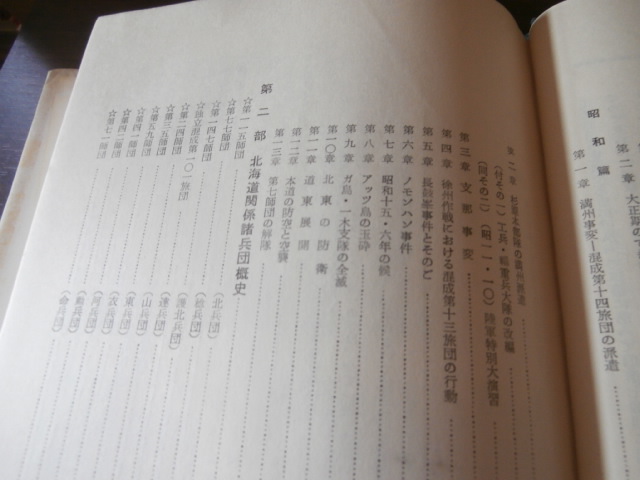 第二
大正期の
昭和篇
第一章 満州事変―混成第十四旅団の派遣
第二章 杉原大部隊の満州派遣
（付その一）工兵・輜重兵大隊の改編
（同その二）（昭一一・一〇）陸軍特別大演習
第三章 支那事変
第四章 徐州作戦における混成第十三旅団の行動
第五章 長鼓峯事件とそのご
第六章 ノモンハン事件
第七章 昭和十五・六年の候
第八章 アッツ島の玉砕
第九章 ガ島・一木支隊の全滅
第一〇章 北東の防衛
第一一章 道東展開
第一二章 本道の防空と空襲
第一三章 第七師団の解隊
第二部 北海道関係諸兵団概史
☆第一一五師団（北兵団）
☆第七七師団（稔兵団）
☆第一四七師団（護北兵団）
☆独立混成第一〇一旅団（達兵団）
☆第二四師団（山兵団）
☆第三五師団（東兵団）
☆第五九師団（衣兵団）
☆第四一師団（河兵団）
☆第四二師団（勲兵団）
☆第七一師団（命兵団）